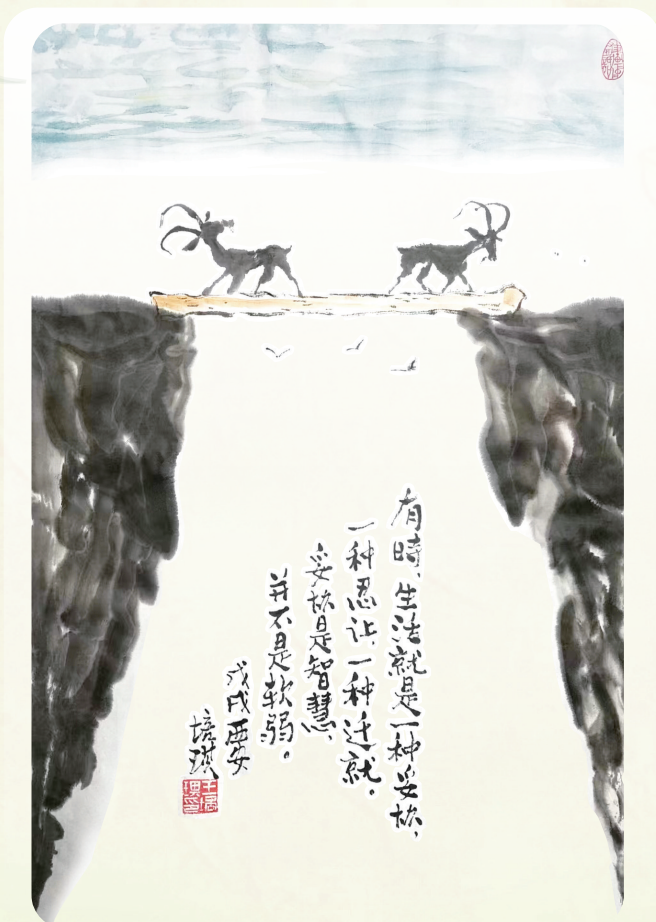 有時，生活就是一种妥协，
一种忍让，一种迁就，
妥协是智慧，
并不是软弱。
戊戌西安
培琪